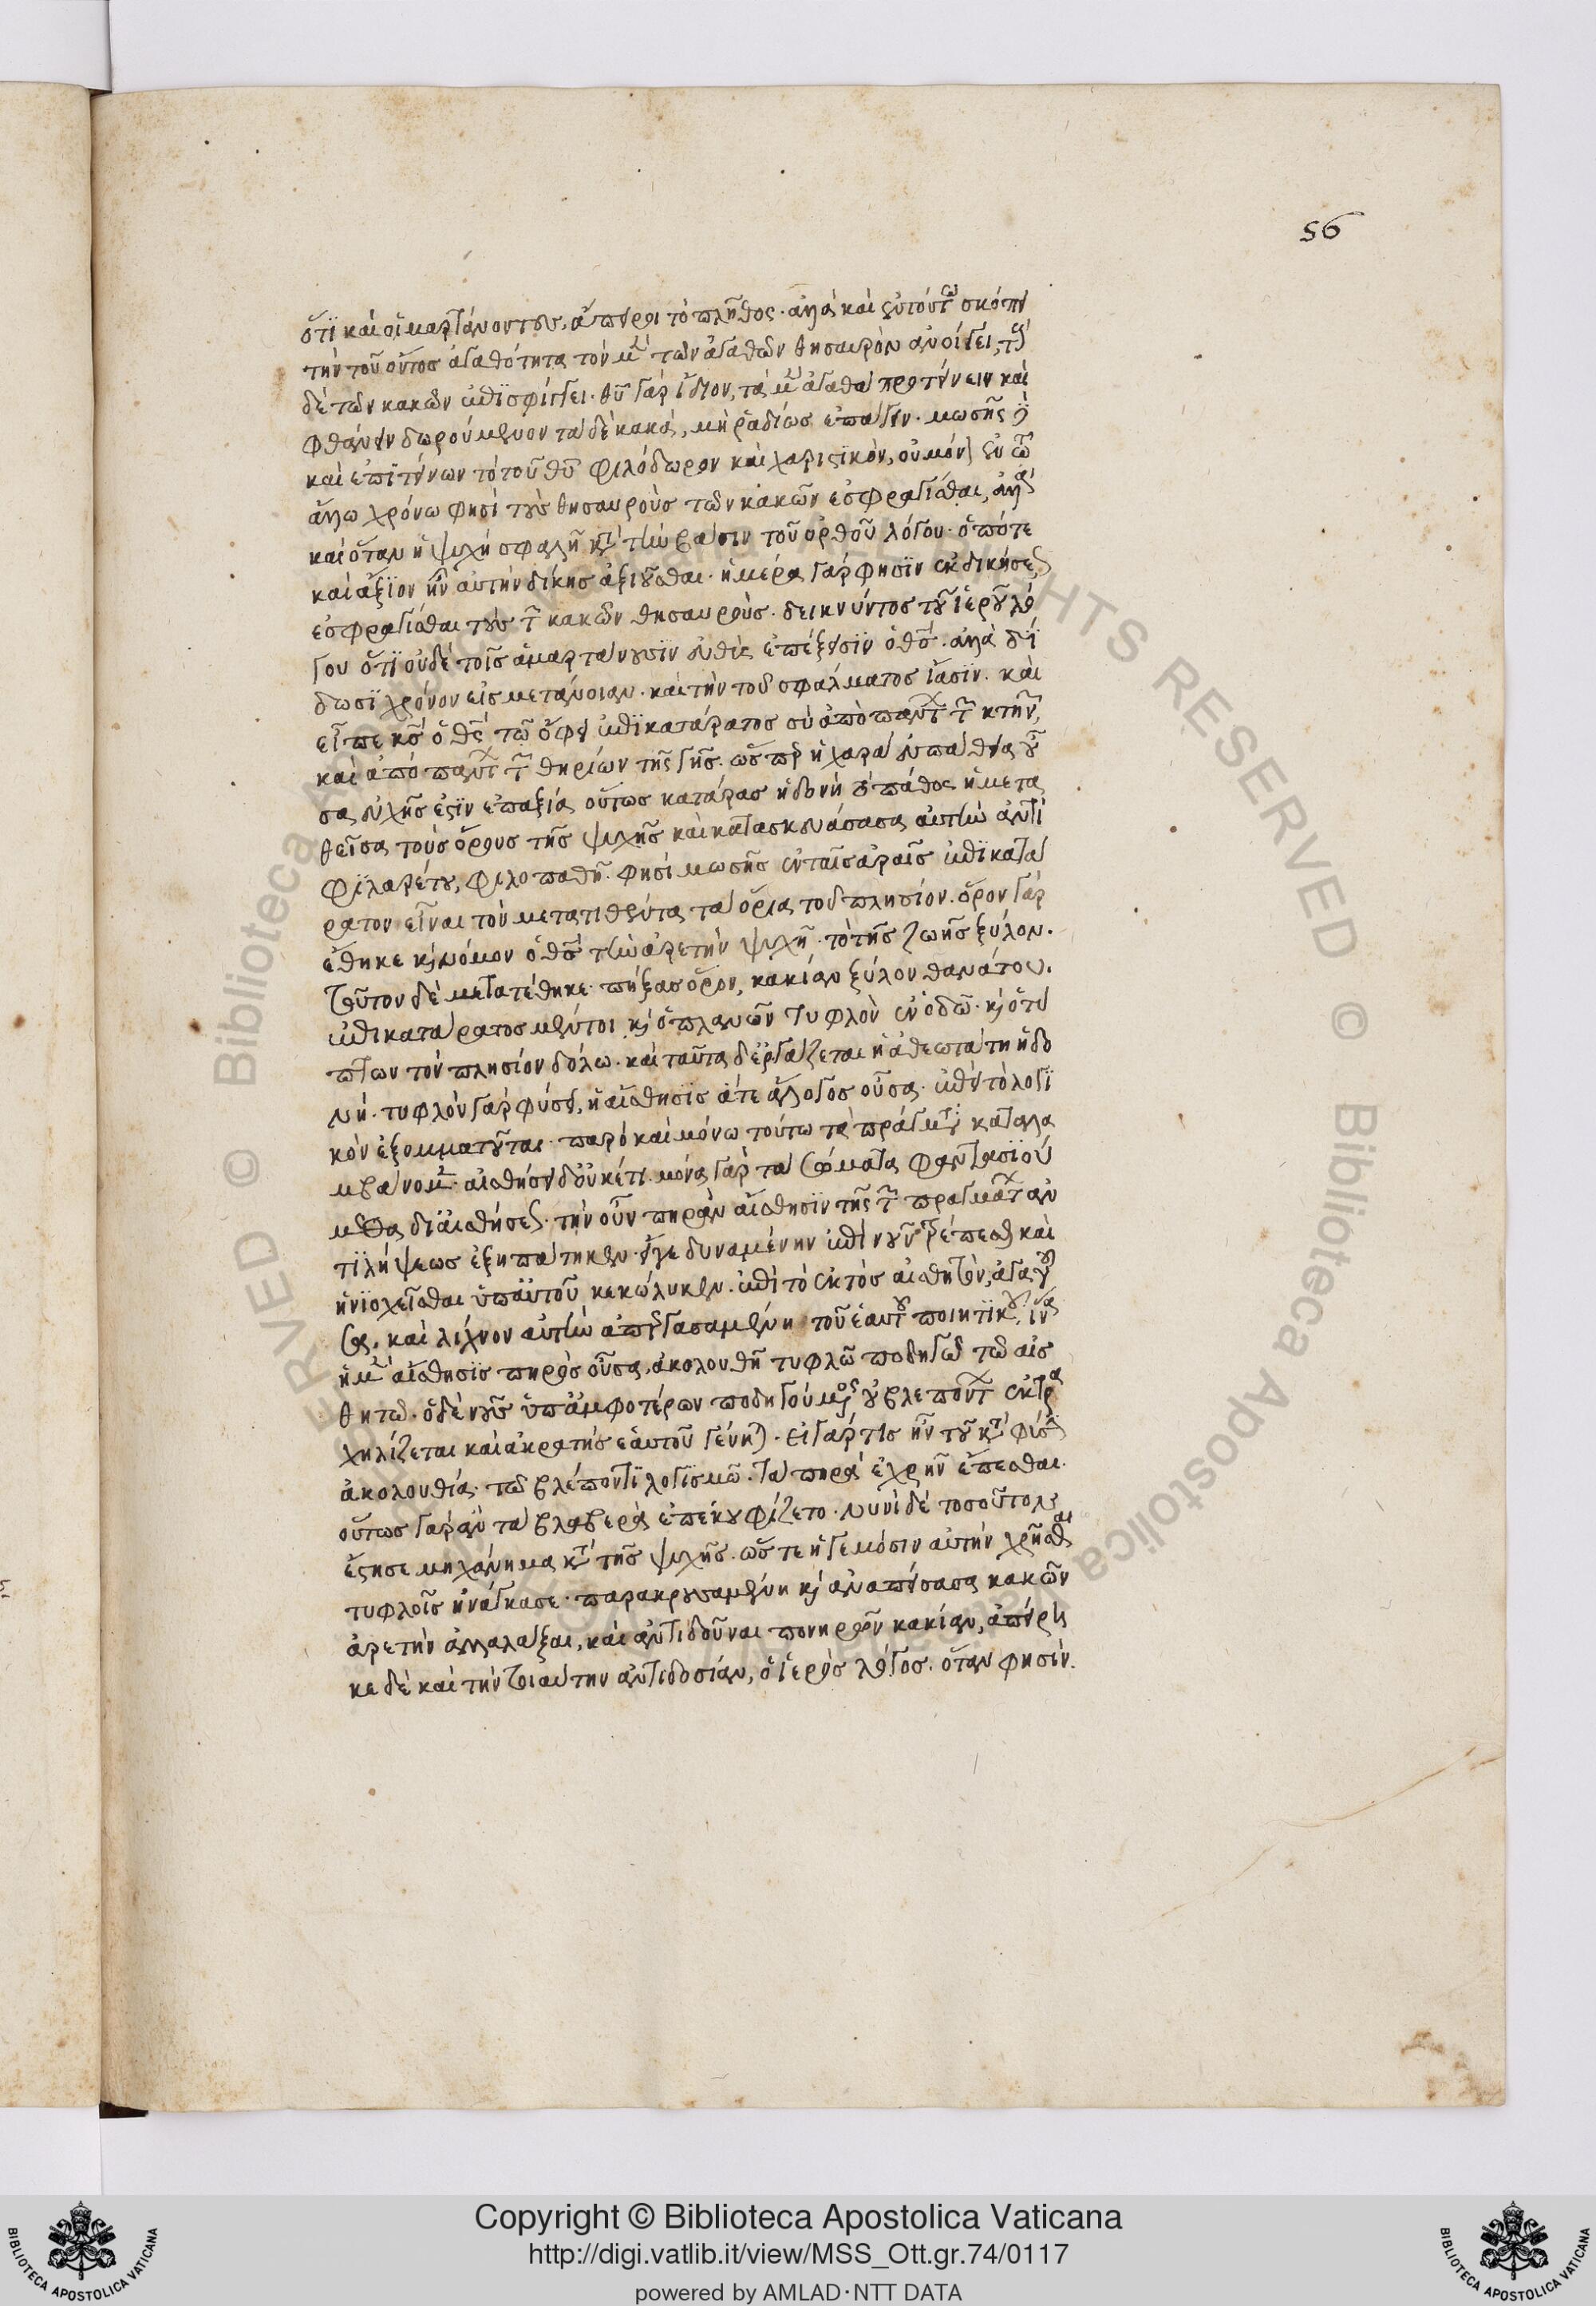 ὅτι καὶ οἱ μαρτάνοντες, ἄπειροι τὸ πλῆθος· ἀλλὰ καὶ ἐν τούτω σκόπει
τὴν τοῦ ὄντος ἀγαθότητα τὸν μὲν τῶν ἀγαθῶν θησαυρὸν ἀνοίγει, τοὺς
δὲ τῶν κακῶν ἐπισφίγγει· θῦ γὰρ ἴδιον, τὰ μὲν ἀγαθὰ προτείνειν καὶ
φθάνειν δωρούμενον τὰ δὲ κακὰ, μὴ ῥαδίως ἐπάγειν· μωσῆς δὲ
καὶ ἐπιτείνων τὸ τοῦ θῦ φιλόδωρον καὶ χαριστικὸν, οὐ μόνον ἐν τῶ
ἄλλω χρόνω φησὶ τοὺς θησαυροὺς τῶν κακῶν ἐσφραγίσθαι, ἀλλὰ
καὶ ὅταν ἡ ψυχὴ σφαλῆ κατὰ τὴν βάσιν τοῦ ὀρθοῦ λόγου· ὁπότε
καὶ ἄξιον ἦν αὐτὴν δίκης ἀξιοῦσθαι· ἡμέρα γάρ φησιν ἐκδικήσεως
ἐσφραγίσθαι τοὺς τῶν κακῶν θησαυροὺς· δεικνύντος τοῦ ἱεροῦ λό
γου ὅτι οὐδὲ τοῖς ἁμαρτάνουσιν εὐθὺς ἐπέξεισιν ὁ θς· ἀλλὰ δί
δωσι χρόνον εἰς μετάνοιαν· καὶ τὴν τοῦ σφάλματος ἴασιν· καὶ
εἶπε κς ὁ θς τῶ ὄφει ἐπικατάρατος σὺ ἀπὸ πάντων τῶν κτηνῶν,
καὶ ἀπὸ πάντων τῶν θηρίων τῆς γῆς· ὥσπερ ἡ χαρὰ εὐπάθεια οὖ
σα εὐχῆς ἐστὶν ἐπαξία οὕτως κατάρας ἡδονὴ τὸ πάθος ἡ μετα
θεῖσα τοὺς ὅρους τῆς ψυχῆς καὶ κατασκευάσασα αὐτὴν ἀντὶ
φιλαρέτου, φιλοπαθῆ· φησὶ μωσῆς ἐν ταῖς ἀραῖς ἐπικατά
ρατον εἶναι τὸν μετατιθέντα τὰ ὅρια τοῦ πλησίον· ὅρον γὰρ
ἔθηκε καὶ νόμον ὁ θς τὴν ἀρετὴν ψυχῆ· τὸ τῆς ζωῆς ξύλον·
τοῦτον δὲ μετατέθηκε· πήξας ὅρον, κακίαν ξύλον θανάτου·
ἐπικατάρατος μέντοι καὶ ὁ πλανῶν τυφλὸν ἐν ὁδῶ· καὶ ὁ τύ
πτων τὸν πλησίον δόλω· καὶ ταῦτα δ' ἐργάζεται ἡ ἀθεωτάτη ἡδο
νή· τυφλὸν γὰρ φύσει, ἡ αἴσθησις ἅτε ἄλογος οὖσα· ἐπεὶ τὸ λογι
κὸν ἐξομματοῦται· παρὸ καὶ μόνω τούτω τὰ πράγματα καταλα
μβάνομεν· αἰσθήσει δ' οὐκέτι· μόνα γὰρ τὰ σώματα φαντασιού
μεθα δι' αἰσθήσεως· τὴν οὖν πηρὰν αἴσθησιν τῆς τῶν πραγμάτων ἀν
τιλήψεως ἐξηπάτηκεν· εἴγε δυναμένην ἐπὶ νοῦν τρέπεσθαι καὶ
ἡνιοχεῖσθαι ὑπ' αὐτοῦ κεκώλυκεν· ἐπὶ τὸ ἐκτὸς αἰσθητὸν, ἀγαγοῦ
σα, καὶ λίχνον αὐτὴν ἀπεργασαμένη τοῦ ἑαυτοῦ ποιητικοῦ, ἵνα
ἡ μὲν αἴσθησις πηρὸς οὖσα, ἀκολουθῆ τυφλῶ ποδηγῶ τῶ αἰσ
θητῶ· ὁ δὲ νοῦς ὑπ' ἀμφοτέρων ποδηγούμενος οὐ βλεπόντων ἐκτρα
χηλίζεται καὶ ἀκρατὴς ἑαυτοῦ γένηται· εἰ γάρ τις ἦν τοῦ κατὰ φύσιν
ἀκολουθία· τῶ βλέποντι λογισμῶ· τὰ πηρὰ ἐχρῆν ἕπεσθαι·
οὕτως γὰρ ἂν τὰ βλαβερὰ ἐπεκουφίζετο· νυνὶ δὲ τοσοῦτον
ἔστησε μηχάνημα κατὰ τῆς ψυχῆς· ὥστε ἡγεμόσιν αὐτὴν χρῆσθαι
τυφλοῖς ἠνάγκασε· παρακρουσαμένη καὶ ἀναπείσασα κακῶν
ἀρετὴν ἀλλάξαι, καὶ ἀντιδοῦναι πονηρῶν κακίαν, ἀπείρη
κε δὲ καὶ τὴν τοιαύτην ἀντιδοσίαν, ὁ ἱερὸς λόγος· ὅταν φησὶν·
56
Copyright © Biblioteca Apostolica Vaticana
http://digi.vatlib.it/view/MSS_Ott.gr.74/0117
powered by AMLAD·NTT DATA